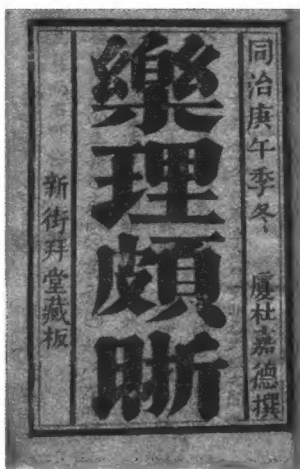 同治庚午季冬　廈杜嘉德撰
樂理頗晰
新街拜堂藏板